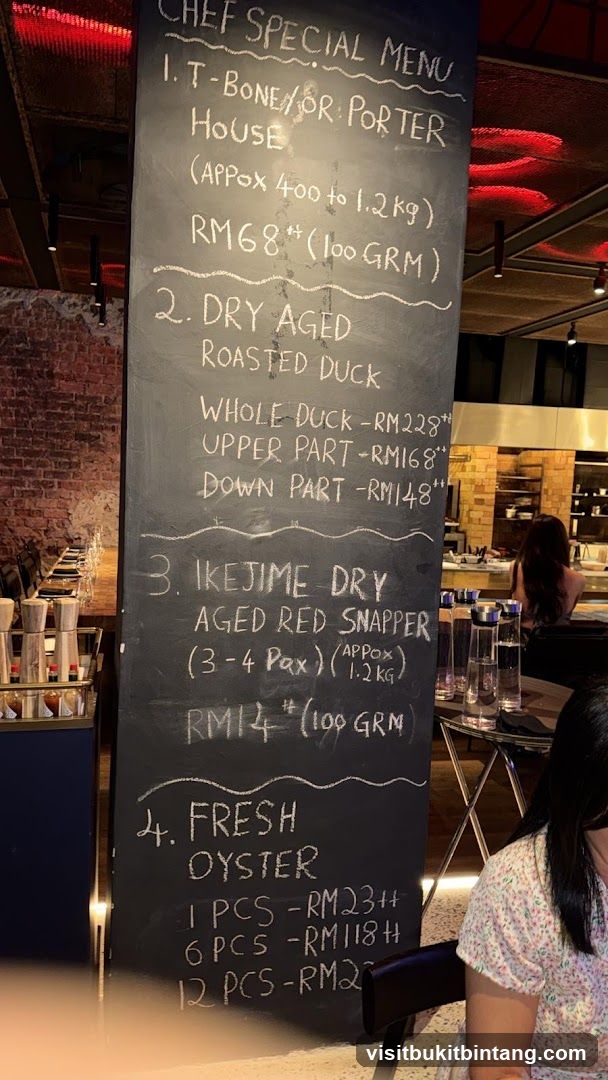 CHEF SPECIAL MENU
1. T-BONE/OR PORTER
HOUSE
(APPOX 400 to 1.2 Kg)
RM68++ (100 GRM)
2. DRY AGED
ROASTED DUCK
WHOLE DUCK - RM228++
UPPER PART - RM168++
DOWN PART - RM148++
3. IKEJIME DRY
AGED RED SNAPPER
(3-4 Pax) (APPOX
1.2KG)
RM14++ (100 GRM)
4. FRESH
OYSTER
1 PCS - RM23++
6 PCS - RM118++
12 PCS -
visitbukitbintang.com